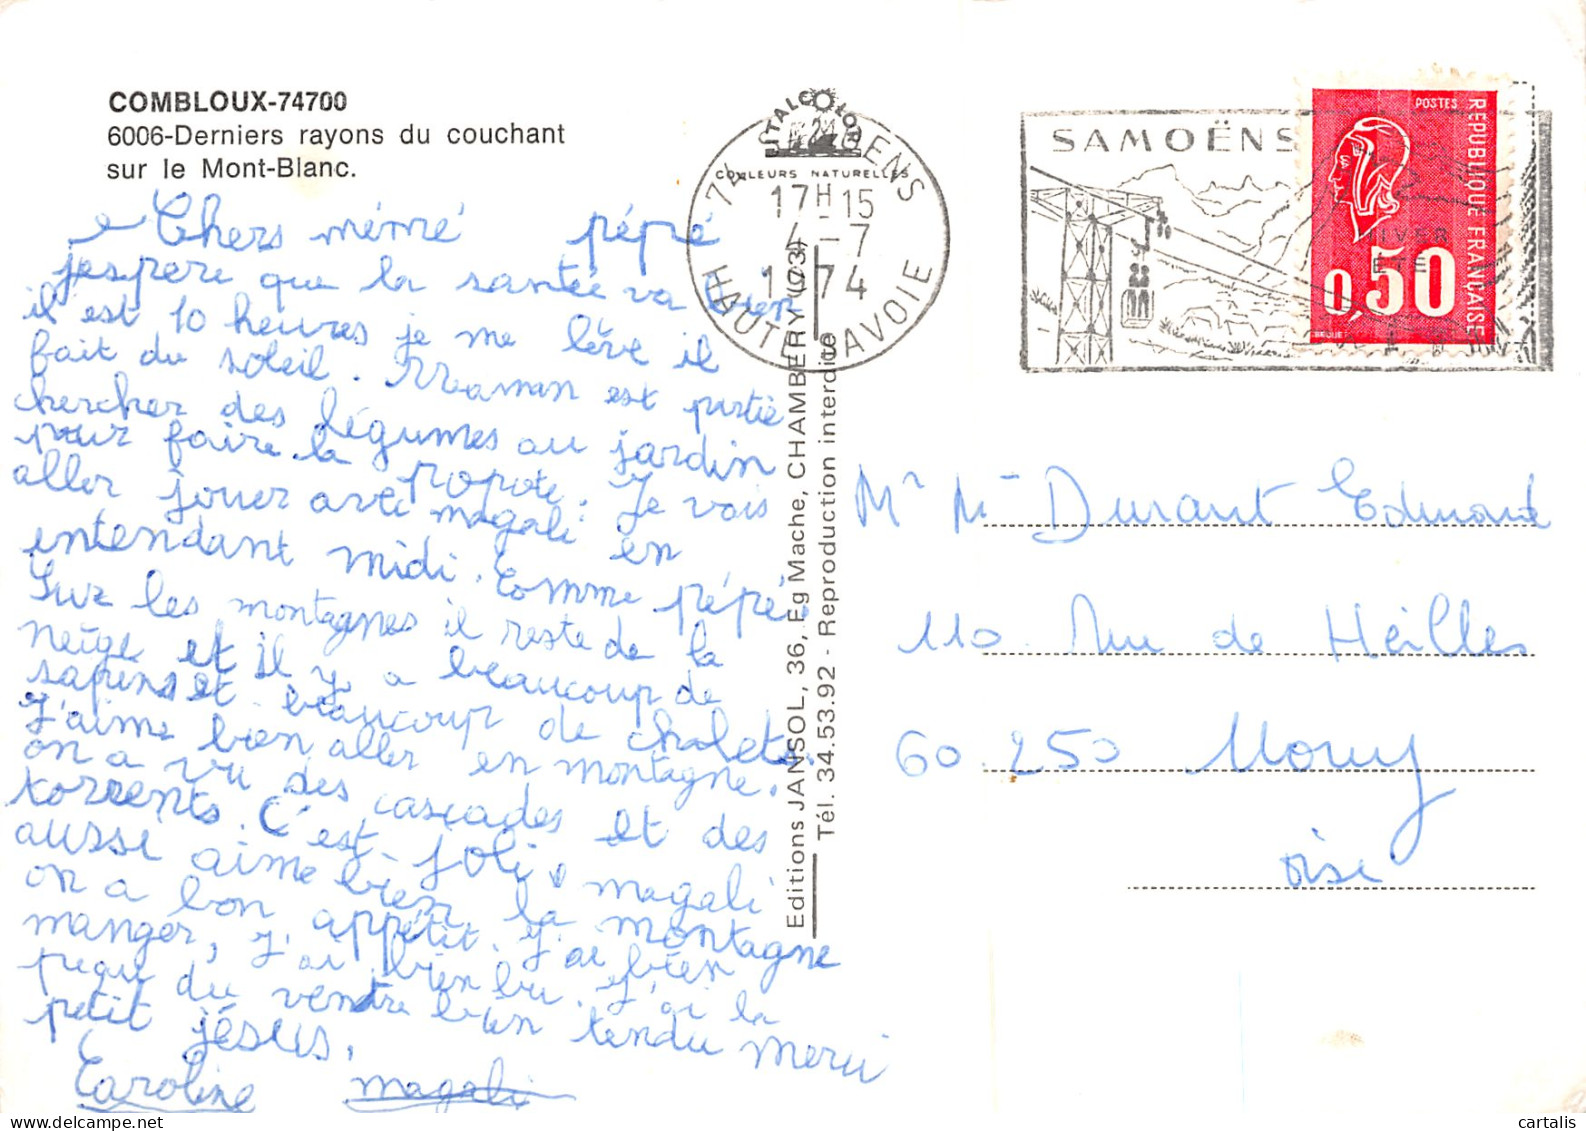 COMBLOUX-74700
6006-Derniers rayons du couchant
sur le Mont-Blanc.
Chers mémé pépé
j'espere que la santée va bien
il est 10 heures je me léve il
fait du soleil. Maman est partie
chercher des légumes au jardin
pour faire la popote. Je vais
aller jouer avec magali en
entendant midi. Comme pépé
Sur les montagnes il reste de la
neige et il y a beaucoup de
sapins et beaucoup de chalets.
J'aime bien aller en montagne.
on a vu des cascades et des
torrents. C'est joli. magali
aussi aime bien la montagne
on a bon appétit. J'ai bien
manger, J'ai bien bu. J'ai la
peau du ventre bien tendu merci
petit jésus.
Caroline magali
ITALCOLOR
COULEURS NATURELLES
74 SAMOENS
17H 15
4-7
1974
HAUTE SAVOIE
SAMOËNS
HIVER
ETE
POSTES
REPUBLIQUE FRANÇAISE
0,50
BEQUET
Editions JANSOL, 36, Fg Mache, CHAMBERY (73)
Tél. 34.53.92 - Reproduction interdite
Mr M Durant Edmond
110. Rue de Heilles
60.250 Mouy
oise
cartalis